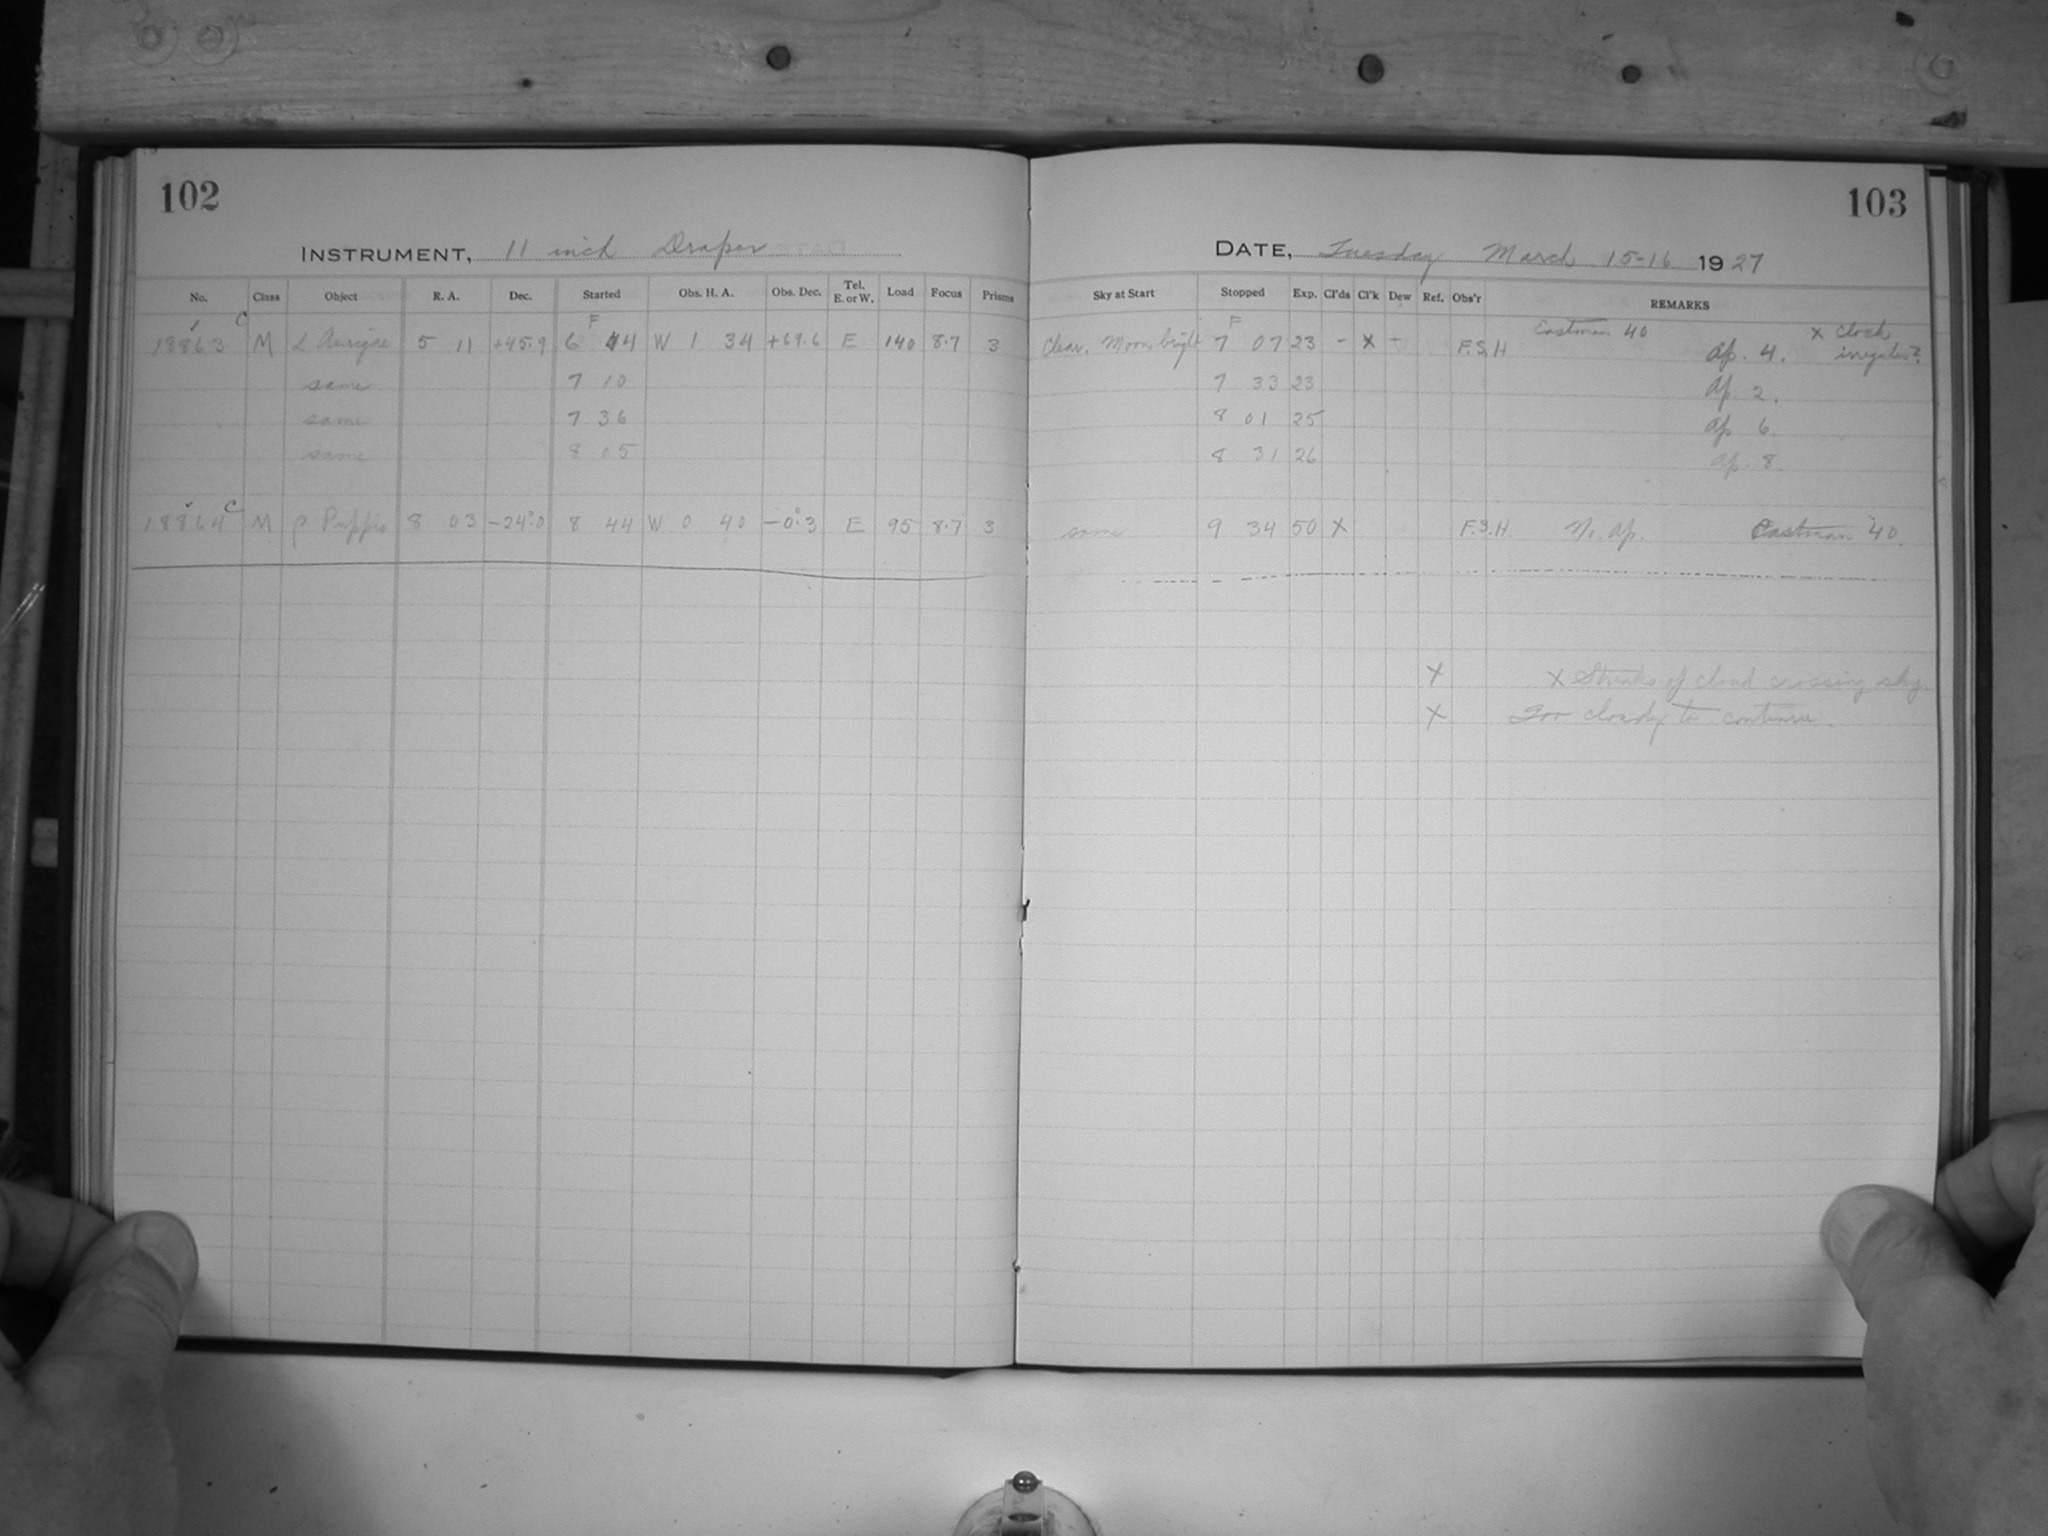 102
INSTRUMENT, 11 inch Draper
No. Class Object R. A. Dec. Started Obs. H. A. Obs. Dec. Tel. E. or W. Load Focus Prisms
18863 C M α Aurigae 5 11 +45.9 6 44 W 1 34 +69.6 E 140 8.7 3
same 7 10
same 7 36
same 8 05
18864 C M ρ Puppis 8 03 -24°.0 8 44 W 0 40 -0°.3 E 95 8.7 3
103
DATE, Tuesday March 15-16 1927
Sky at Start Stopped Exp. Cl'ds Cl'k Dew Ref. Obs'r REMARKS
Clear. Moon bright 7 07 23 - x - F.S.H Eastman 40 Ap. 4. x Clock irregular?
7 33 23 Ap 2.
8 01 25 Ap 6.
8 31 26 Ap. 8.
same 9 34 50 x F.S.H. No. Ap. Eastman 40.
x x Streaks of cloud crossing sky.
x Too cloudy to continue.